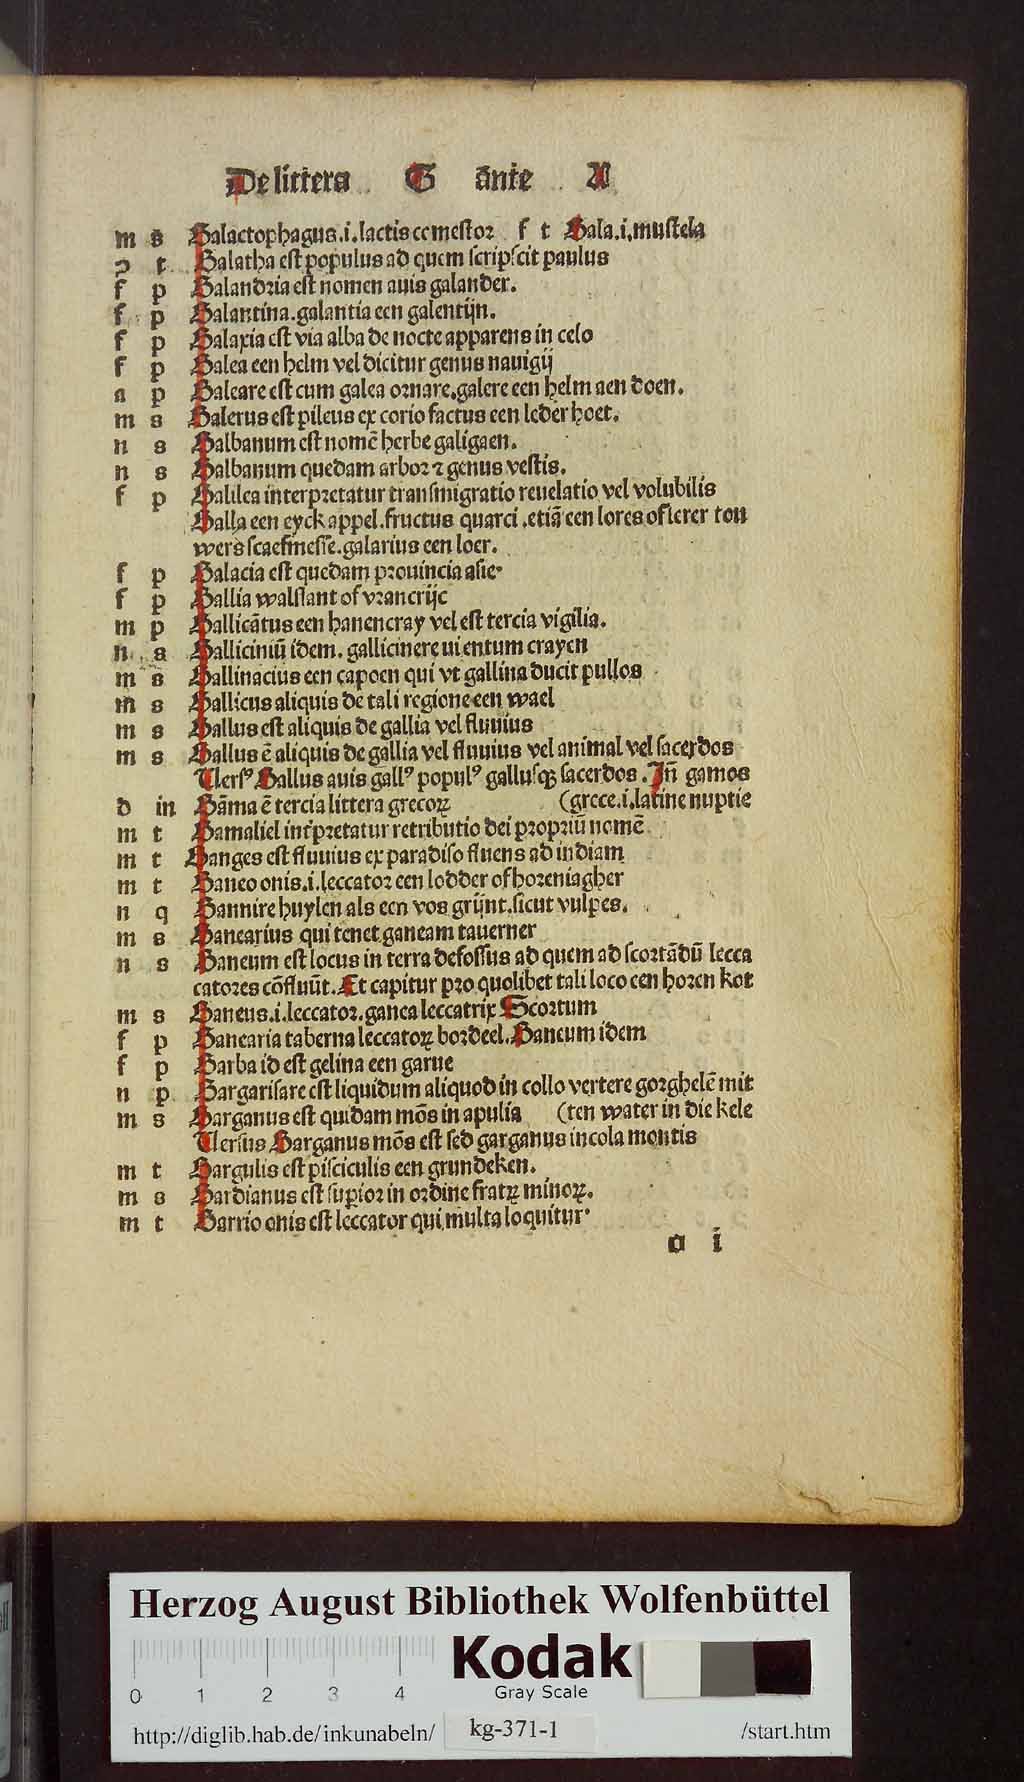 De littera G ānte A
m s Galactophagus .i. lactis comestor f t Gala .i. mustela
ↄ t Galatha est populus ad quem scripscit paulus
f p Galandria est nomen auis galander.
f p Galantina. galantia een galentijn.
f p Galaxia est via alba de nocte apparens in celo
f p Galea een helm vel dicitur genus nauigij
a p Galeare est cum galea ornare. galere een helm aen doen.
m s Galerus est pileus ex corio factus een leder hoet.
n s Galbanum est nomē herbe galigaen.
n s Galbanum quedam arbor ⁊ genus vestis.
f p Galilea interpretatur transmigratio reuelatio vel volubilis
Galla een eyck appel. fructus quarci. etiā een lores of lerer tou
wers scaefmesse. galarius een loer.
f p Galacia est quedam prouincia asie.
f p Gallia walslant of vrancrijc
m p Gallicātus een hanencray vel est tercia vigilia.
n s Galliciniū idem. gallicinere ui entum crayen
m s Gallinacius een capoen qui vt gallina ducit pullos
m s Gallicus aliquis de tali regione een wael
m s Gallus est aliquis de gallia vel fluuius
m s Gallus ē aliquis de gallia vel fluuius vel animal vel sacerdos
Versꝰ Gallus auis gallꝰ populꝰ gallusqꝫ sacerdos. In̄ gamos
d in Gāma ē tercia littera grecoꝝ (grece .i. latine nuptie
m t Gamaliel int̄pretatur retributio dei propriū nomē
m t Ganges est fluuius ex paradiso fluens ad indiam
m t Ganeo onis .i. leccator een lodder of horeniagher
n q Gannire huylen als een vos grijnt. sicut vulpes.
m s Ganearius qui tenet ganeam tauerner
n s Ganeum est locus in terra defossus ad quem ad scortādū lecca
catores cōfluūt. Et capitur pro quolibet tali loco een horen kot
m s Ganeus .i. leccator. ganea leccatrix Scortum
f p Ganearia taberna leccatoꝝ bordeel. Ganeum idem
f p Garba id est gelina een garue
n p Gargarisare est liquidum aliquod in collo vertere gorghelē mit
m s Garganus est quidam mōs in apulia (ten water in die kele
Versus Garganus mōs est sed garganus incola montis
m t Gargulis est pisciculis een grundeken.
m s Gardianus est supior in ordine fratꝝ minoꝝ.
m t Garrio onis est leccator qui multa loquitur.
o i
Herzog August Bibliothek Wolfenbüttel
Kodak
Gray Scale
0 1 2 3 4
http://diglib.hab.de/inkunabeln/ kg-371-1 /start.htm